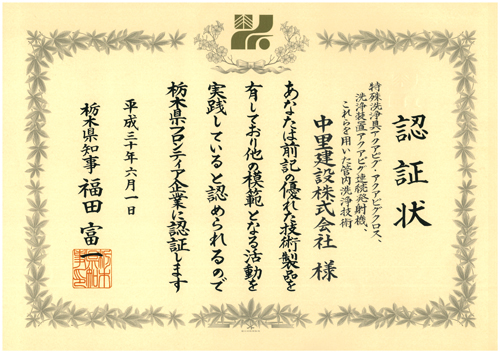 認証状
特殊洗浄具アクアピグ・アクアピグクロス、
洗浄装置アクアピグ連続発射機、
これらを用いた管内洗浄技術
中里建設株式会社 様
あなたは前記の優れた技術・製品を
有しており他の模範となる活動を
実践していると認められるので
栃木県フロンティア企業に認証します
平成三十年六月一日
栃木県知事 福田富一